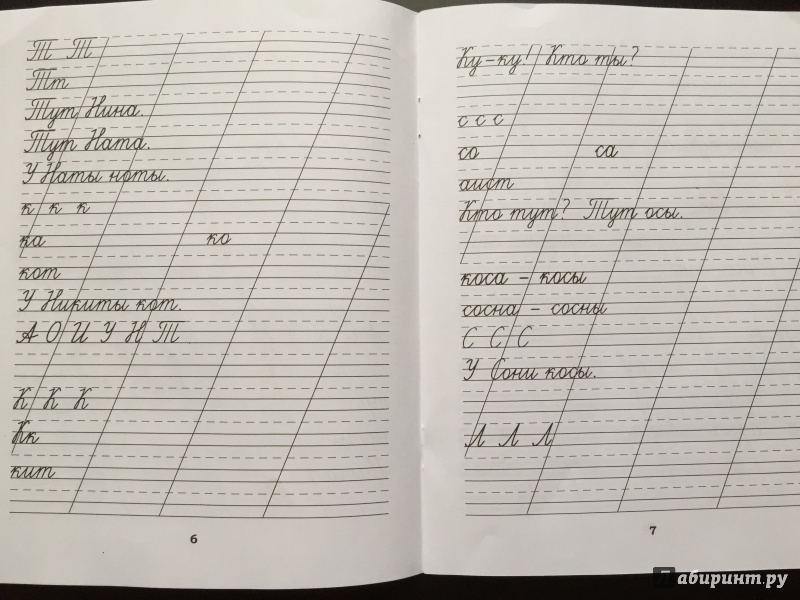 Т Т
Тт
Тут Нина.
Тут Ната.
У Наты ноты.
к к к
ка ко
кот
У Никиты кот.
А О И У Н Т
К К К
Кк
кит
6
Ку-ку! Кто ты?
с с с
со са
аист
Кто тут? Тут осы.
коса - косы
сосна - сосны
С С С
У Сони косы.
Л Л Л
7
Лабиринт.ру